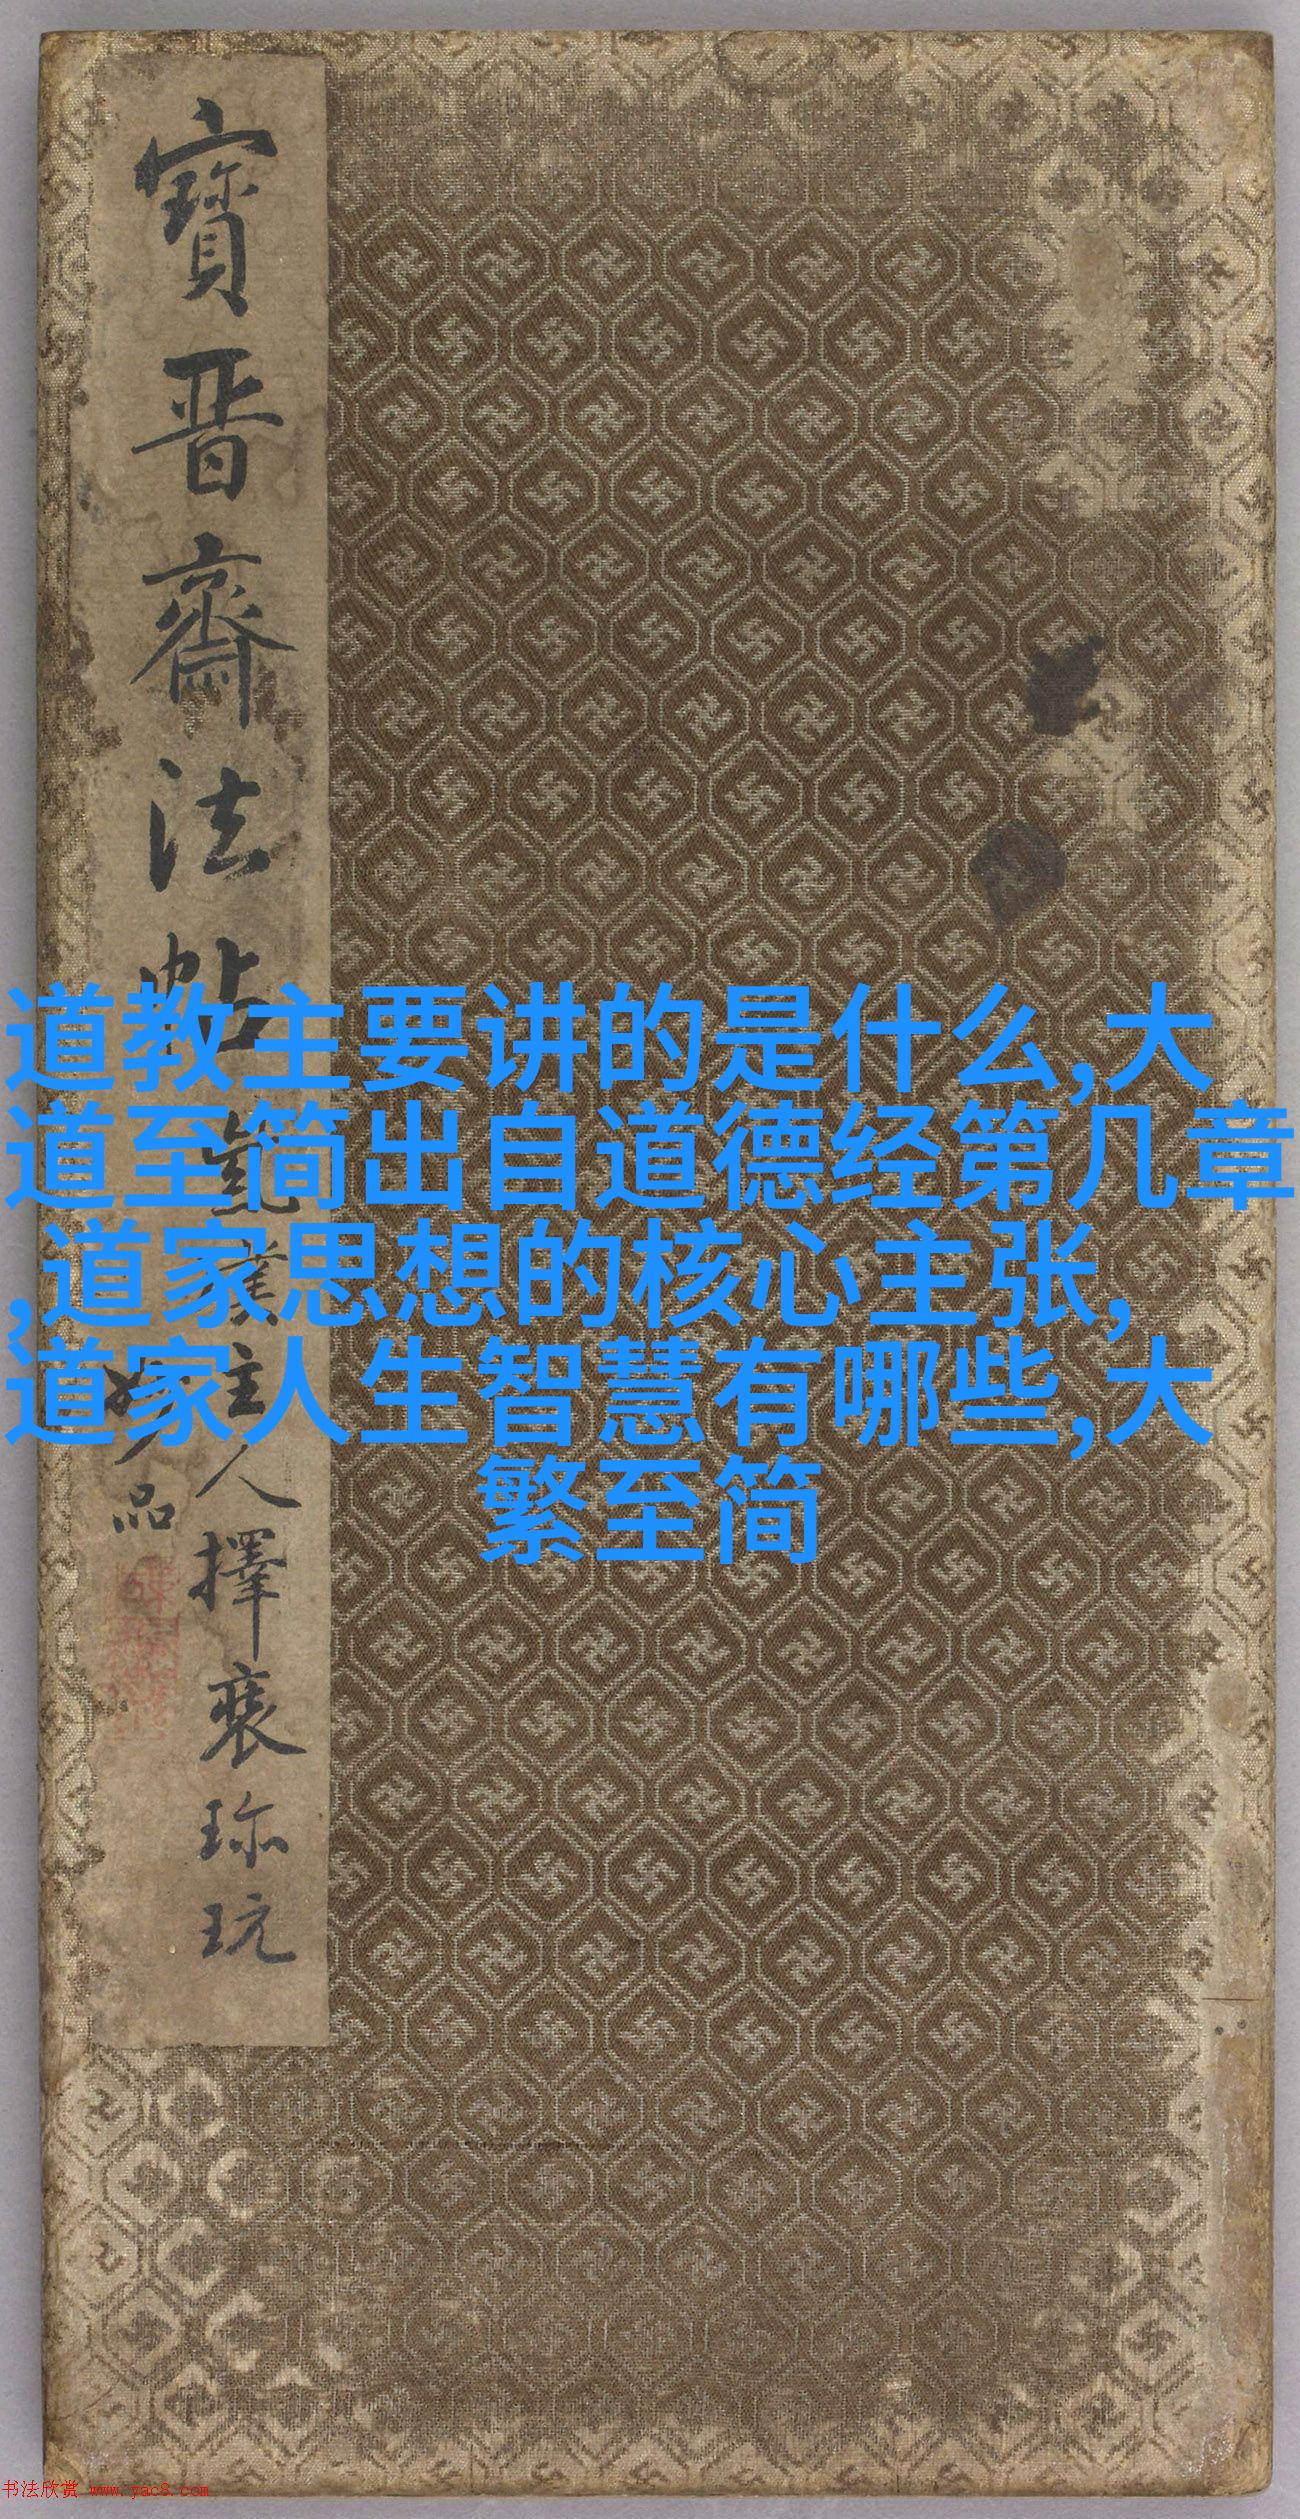 寶晉齋法帖
主人擇裘珎玩
品
道教主要讲的是什么,大
道至简出自道德经第几章
,道家思想的核心主张,
道家人生智慧有哪些,大
繁至简
书法欣赏 www.yac8.com